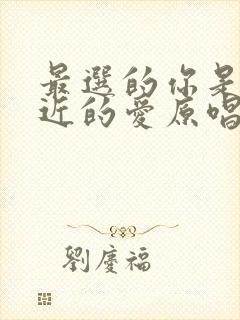 最選的你是
近的愛原唱
劉慶福